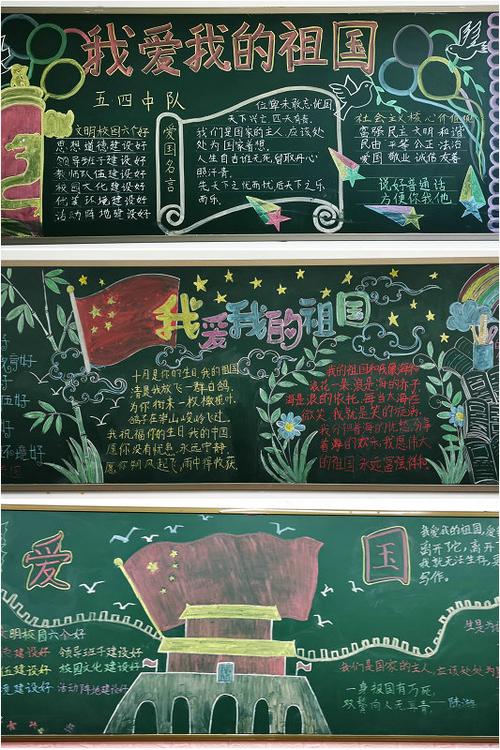 我爱我的祖国
五四中队
文明校园六个好
思想道德建设好
领导班子建设好
教师队伍建设好
校园文化建设好
优美环境建设好
活动阵地建设好
爱国名言
位卑未敢忘忧国
天下兴亡,匹夫有责。
我们是国家的主人,应该处
处为国家着想。
人生自古谁无死,留取丹心
照汗青。
先天下之忧而忧,后天下之乐
而乐。
社会主义核心价值观
富强 民主 文明 和谐
自由 平等 公正 法治
爱国 敬业 诚信 友善
说好普通话
方便你我他
我爱我的祖国
十月是你的生日,我的祖国
清晨我放飞一群白鸽
为你衔来一枚橄榄叶
鸽子在崇山峻岭飞过
我祝福你的生日我的中国
愿你没有忧患,永远宁静
愿你朔风起飞,雨中得收获
我的祖国和我像海和
浪花一朵,浪是海的赤子
海是浪的依托,每当大海在
微笑,我就是笑的旋涡,
我分担着海的忧愁,分享
着海的欢乐,我愿伟大
的祖国永远富强祥和
爱
国
我爱我的祖国,
离开了它,离开
我就无法生存,更
写作。
文明校园六个好
建设好 领导班子建设好
建设好 校园文化建设好
建设好 活动阵地建设好
我们是国家的主人,应该处处为
一身报国有万死,
双鬓向人无再青。——陆游